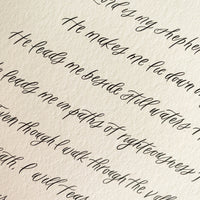 ord is my shepher
He makes me lie down i
He leads me beside still waters
leads me in paths of righteousness
ven though I walk through the vall
ath, I will fear